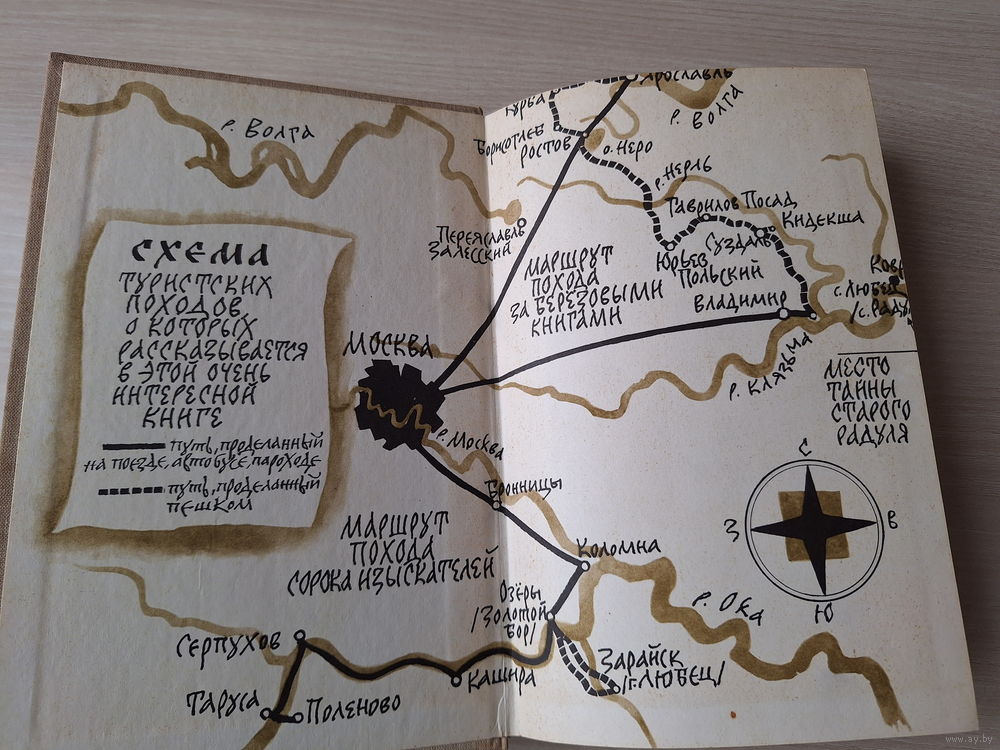 р. Волга
СХЕМА
ТУРИСТСКИХ
ПОХОДОВ
О КОТОРЫХ
РАССКАЗЫВАЕТСЯ
В ЭТОЙ ОЧЕНЬ
ИНТЕРЕСНОЙ
КНИГЕ
путь, проделанный
на поезде, автобусе, пароходе
путь, проделанный
пешком
МОСКВА
р. Москва
МАРШРУТ
ПОХОДА
СОРОКА ИЗЫСКАТЕЛЕЙ
Серпухов
Таруса
Поленово
Кашира
Переяславль
Залесский
Ярославль
р. Волга
Курба
Борисоглеб
Ростов
о. Неро
р. Нерль
Гаврилов Посад
Кидекша
Суздаль
Юрьев
Польский
Владимир
МАРШРУТ
ПОХОДА
ЗА БЕРЕЗОВЫМИ
КНИГАМИ
Ковр
с. Любец
/с. Раду
р. Клязьма
МЕСТО
ТАЙНЫ
СТАРОГО
РАДУЛЯ
С
З
В
Ю
Бронницы
Коломна
р. Ока
Озёры
/Золотой
Бор/
Зарайск
/г. Любец/
www.ay.by